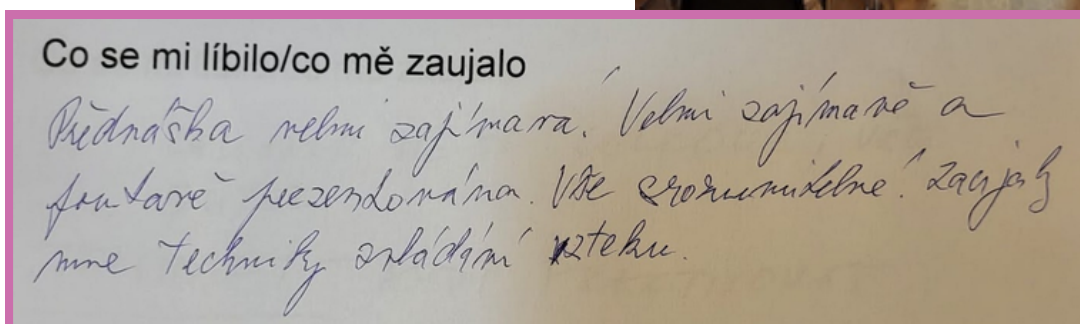 Co se mi líbilo/co mě zaujalo
Přednáška velmi zajímavá. Velmi zajímavě a
poutavě prezentována. Vše srozumitelné. Zaujaly
mne techniky zvládání vzteku.